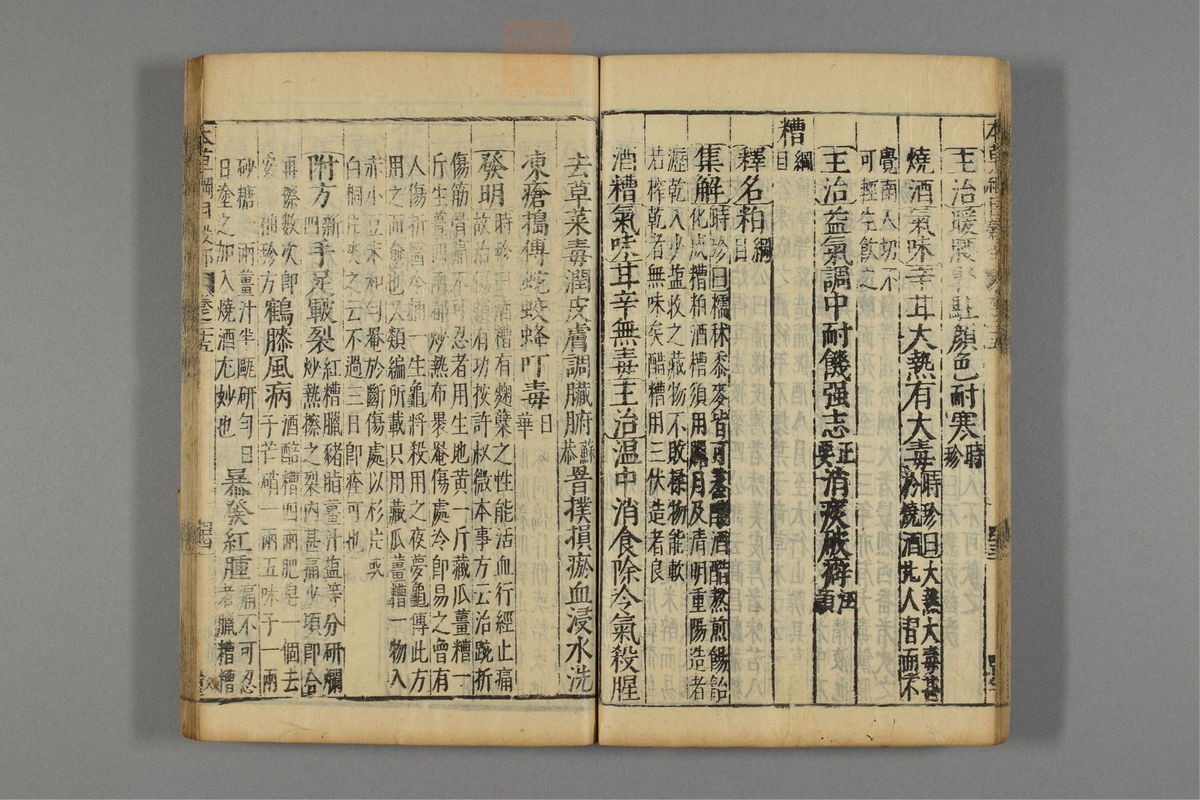 主治暖
駐顏色耐寒時珍
燒酒氣味辛甘大熱有大毒時珍曰大熱大毒甚
燒酒
人
兩不
覺南人切不
可輕生飲之
主治益氣調中耐饑强志正要消痰破癖汪頴
糟綱目
釋名粕綱目
集解時珍曰糯秫黍麥皆可蒸釀酒醋熬煎餳飴
化成糟粕酒糟須用臘月及清明重陽造者
瀝乾入少盐收之藏物不敗揉物能軟
若榨乾者無味矣醋糟用三伏造者良
酒糟氣味甘辛無毒主治温中消食除冷氣殺腥
去草菜毒潤皮膚調臟腑蘇恭罯撲損瘀血浸水洗
凍瘡搗傅蛇蛟蜂叮毒日華
發明時珍曰酒糟有麴糵之性能活血行經止痛
故治傷損有功按許叔微本事方云治踠折
傷筋骨痛不可忍者用生地黄一斤藏瓜薑糟一
斤生薑四兩都炒熱布褁罨傷處冷即易之曾有
人傷折醫令捕一生龜將殺用之夜夢龜傳此方
用之而愈也又類編所載只用藏瓜薑糟一物入
赤小豆末和勻罨於斷傷處以杉片或
白桐片夾之云不過三日即痊可也
附方新四手足皸裂紅糟臘豬脂薑汁盐等分研爛
炒熱擦之裂內甚痛少頃即合
再擦數次即
安袖珍方鶴膝風病酒醅糟四兩肥皂一個去
子芒硝一兩五味子一兩
砂糖一兩薑汁半甌研勻日
日塗之加入燒酒尤妙也暴發紅腫痛不可忍
者臘糟糟
本草綱目穀部